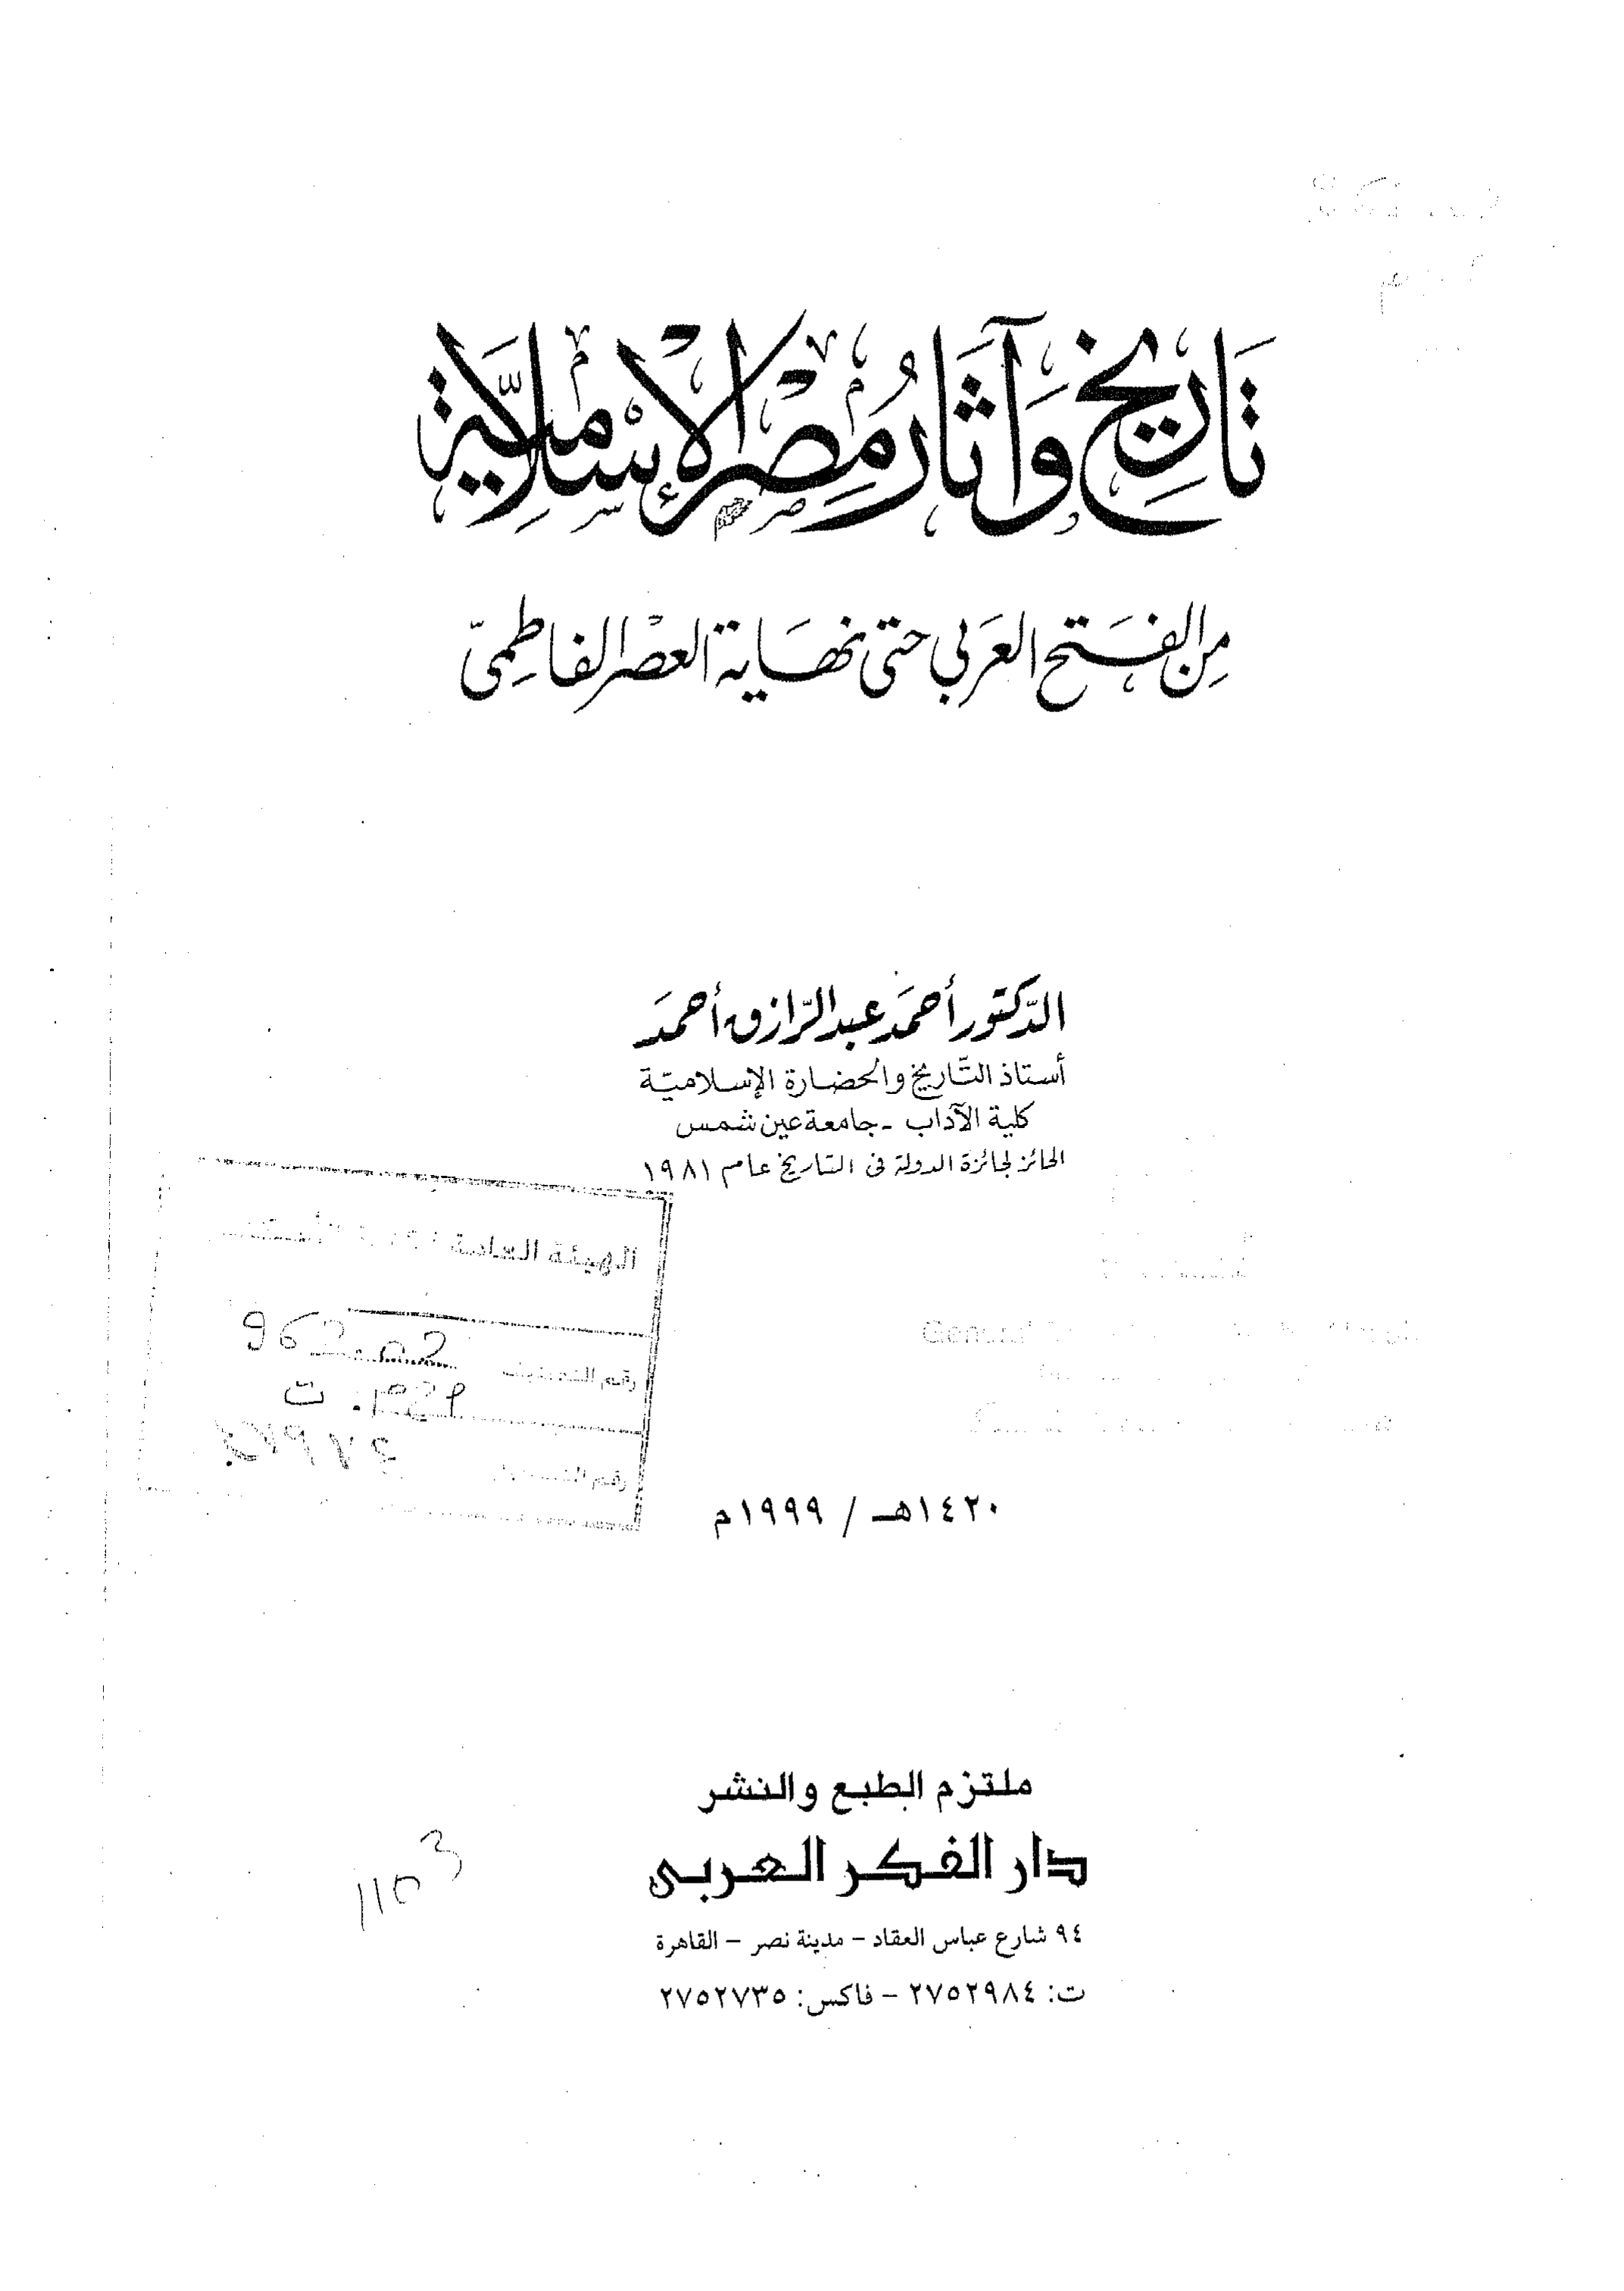 تاريخ وآثار مصر الإسلامية
من الفتح العربي حتى نهاية العصر الفاطمي
الدكتور أحمد عبد الرازق أحمد
أستاذ التاريخ والحضارة الإسلامية
كلية الآداب - جامعة عين شمس
الحائز لجائزة الدولة فى التاريخ عام ١٩٨١
الهيئة العامة
رقم
رقم
١٤٢٠هـ / ١٩٩٩م
ملتزم الطبع والنشر
دار الفكر العربى
٩٤ شارع عباس العقاد - مدينة نصر - القاهرة
ت: ٢٧٥٢٩٨٤ - فاكس: ٢٧٥٢٧٣٥